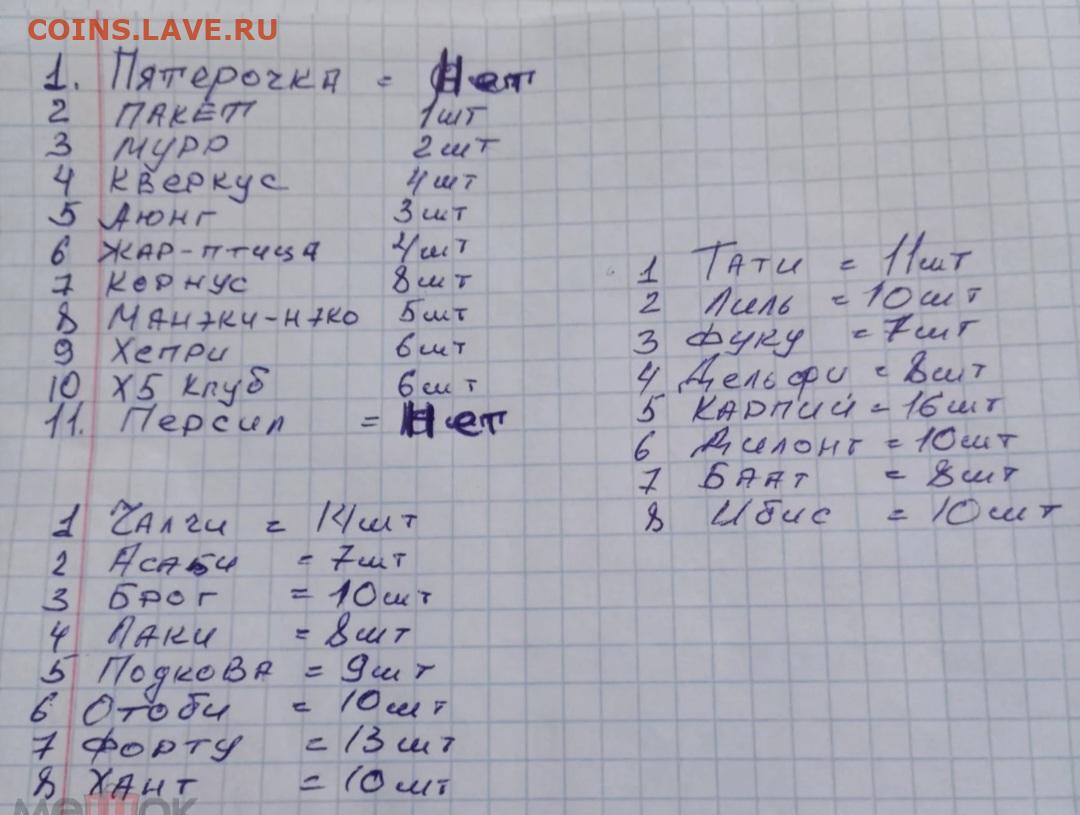 COINS.LAVE.RU
1. Пятерочка = Нет
2 ПАКЕТ 1шт
3 МУРР 2шт
4 Кверкус 4шт
5 Аюнг 3шт
6 ЖАР-птица 4шт
7 Корнус 8шт
8 МАНэки-Нэко 5шт
9 Хепри 6шт
10 Х5 Клуб 6шт
11. Персил = Нет
1 Чалчи = 14шт
2 Асаби = 7шт
3 Брог = 10шт
4 Лаки = 8шт
5 ПодкоВА = 9шт
6 Отоби = 10шт
7 Форту = 13шт
8 ХАНТ = 10шт
1 Тати = 11шт
2 Лиль = 10шт
3 Фуку = 7шт
4 Дельфи = 8шт
5 КАРПИЙ = 16шт
6 Дилонг = 10шт
7 БААТ = 8шт
8 Ибис = 10шт
мешок